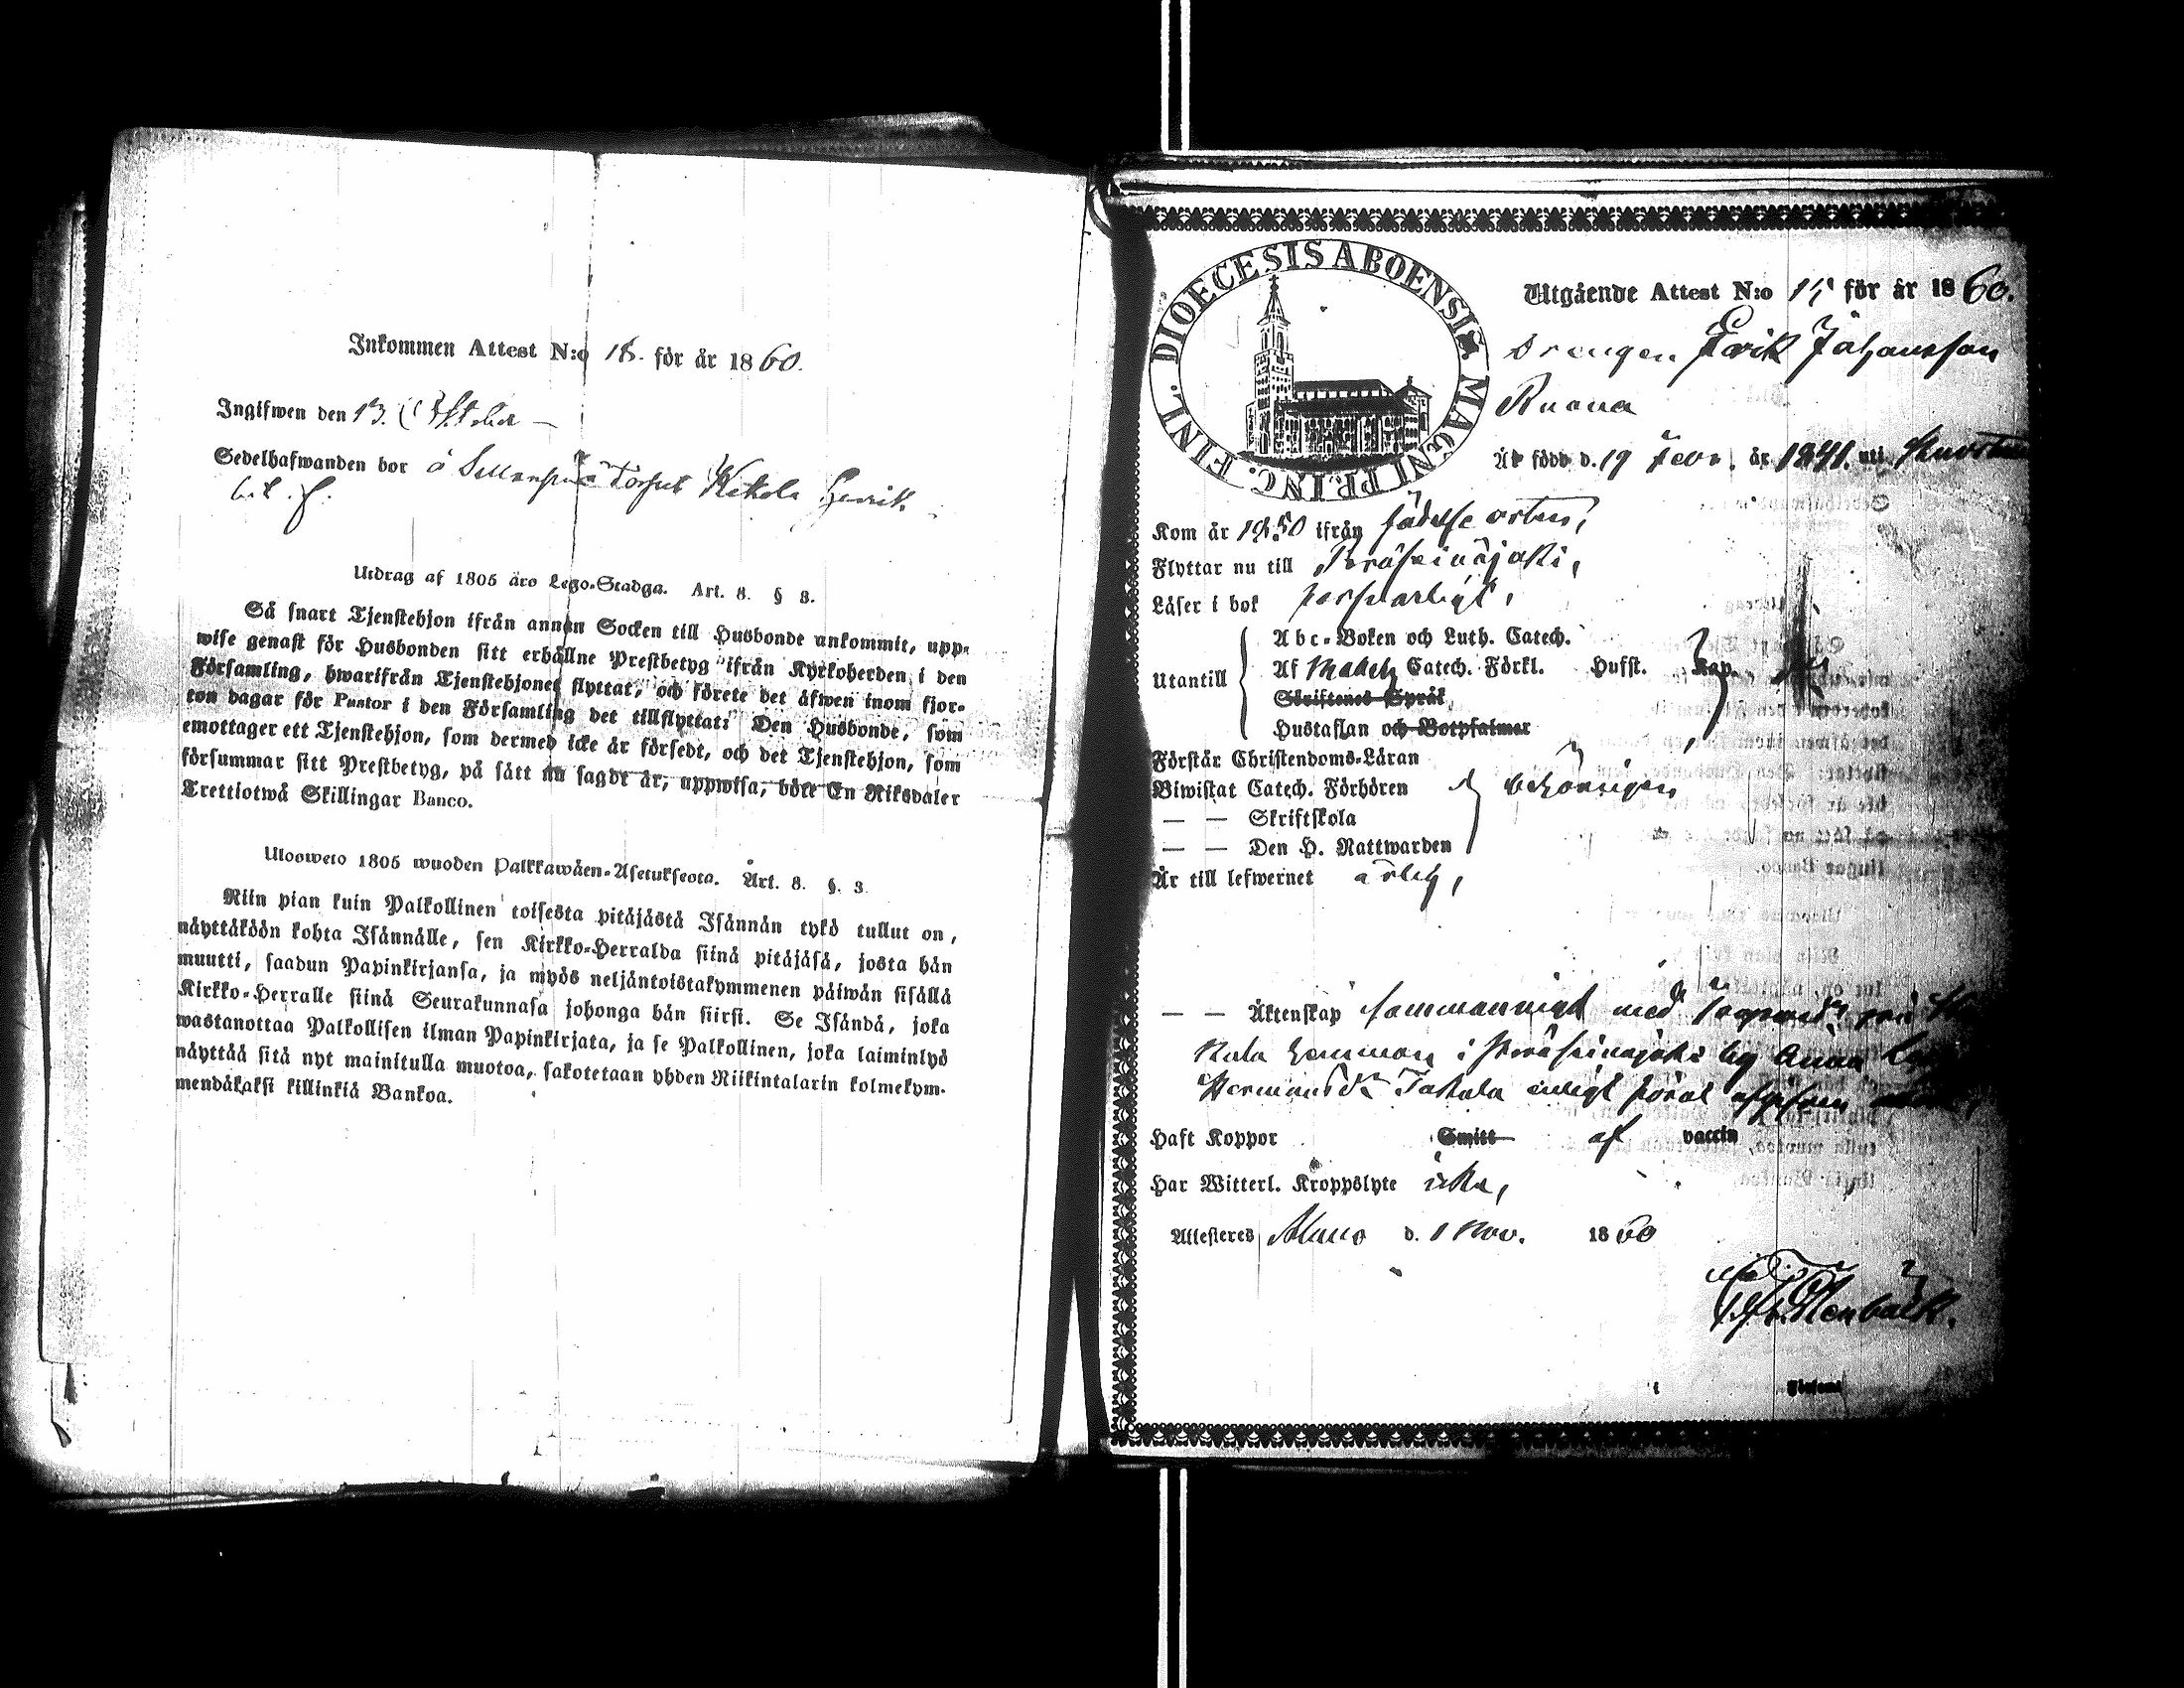 Inkommen Attest N:o 18. för år 1860.
Ingifwen den 13. October
Sedelhafwanden bor å torpet Henrik
Utdrag af 1805 års Lego-Stadga. Art. 8. § 3.
Så snart Tjenstehjon ifrån annan Socken till Husbonde ankommit, upp-
wise genast för Husbonden sitt erhållne Prestbetyg ifrån Kyrkoherden i den
Församling, hwarifrån Tjenstehjonet flyttat, och förete det äfwen inom fjor-
ton dagar för Pastor i den Församling det tillflyttat: Den Husbonde, som
emottager ett Tjenstehjon, som dermed icke är försedt, och det Tjenstehjon, som
försummar sitt Prestbetyg, på sätt nu sagdt är, uppwisa, böte En Riksdaler
Trettiotwå Skillingar Banco.
Ulosweto 1805 wuoden Palkkawäen-Asetuksesta. Art. 8. §. 3.
Niin pian kuin Palkollinen toisesta pitäjästä Isännän tykö tullut on,
näyttäköön kohta Isännälle, sen Kirkko-Herralda siinä pitäjäsä, josta hän
muutti, saadun Papinkirjansa, ja myös neljäntoistakymmenen päiwän sisällä
Kirkko-Herralle siinä Seurakunnasa johonga hän siirsi. Se Isändä, joka
wastanottaa Palkollisen ilman Papinkirjata, ja se Palkollinen, joka laiminlyö
näyttää sitä nyt mainitulla muotoa, sakotetaan yhden Riikintalarin kolmekym-
mendäkaksi killinkiä Bankoa.
DIOECESIS ABOENSIS MAGNI PRINC. FINL.
Utgående Attest N:o 15 för år 1860.
Drengen Erik Johansson
Ruona
Är född d. 19 Febr. år 1841. uti
Kom år 1850 ifrån födelse orten,
Flyttar nu till Peräseinäjoki,
Läser i bok försvarligt,
Utantill
Abc-Boken och Luth. Catech.
Af Catech. Förkl. Hufst. Kap.
Skriftenes Språk
Hustaflan och Botpsalmer
Förstår Christendoms-Läran
Biwistat Catech. Förhören behörigen
— — Skriftskola
— — Den H. Nattwarden
Är till lefwernet ärlig,
— — Äktenskap sammanvigd med
hemman i Peräseinäjoki by Anna
enligt
Haft Koppor Smitt af vaccin
Har Witterl. Kroppslyte icke,
Attesteres Alavo d. 1 Nov. 1860